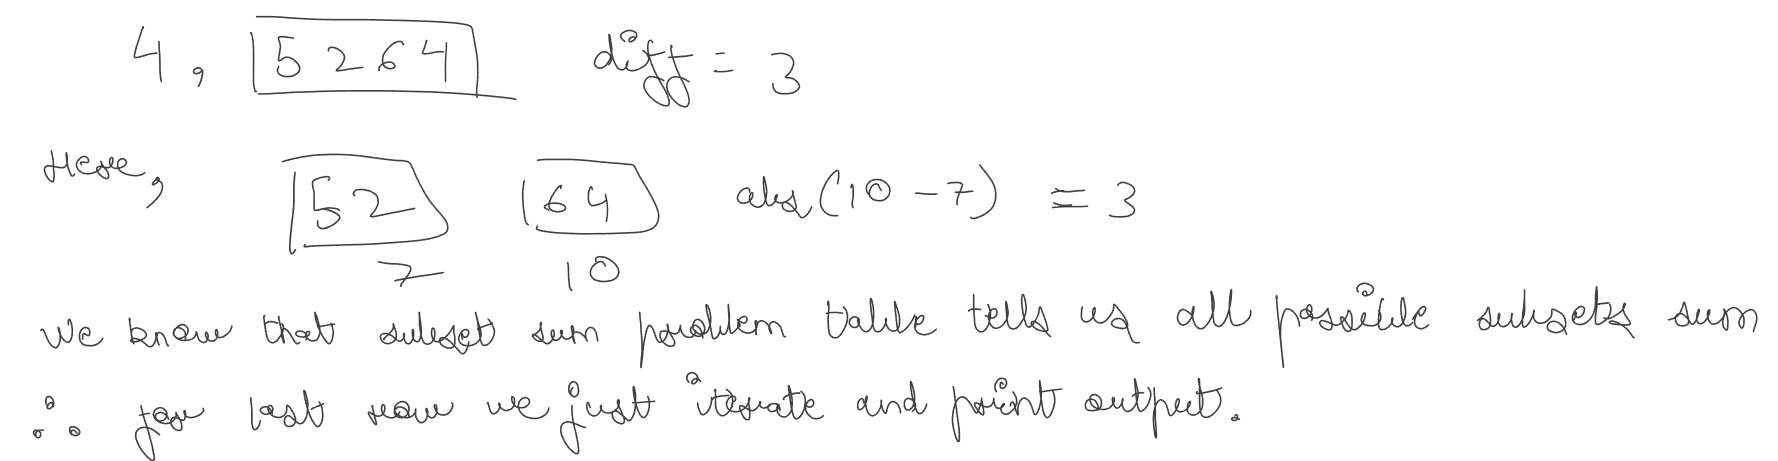 4, 5 2 6 4 diff = 3
Here, 5 2 6 4 abs(10 - 7) = 3
7 10
We know that subset sum problem table tells us all possible subsets sum
∴ for last row we just iterate and print output.